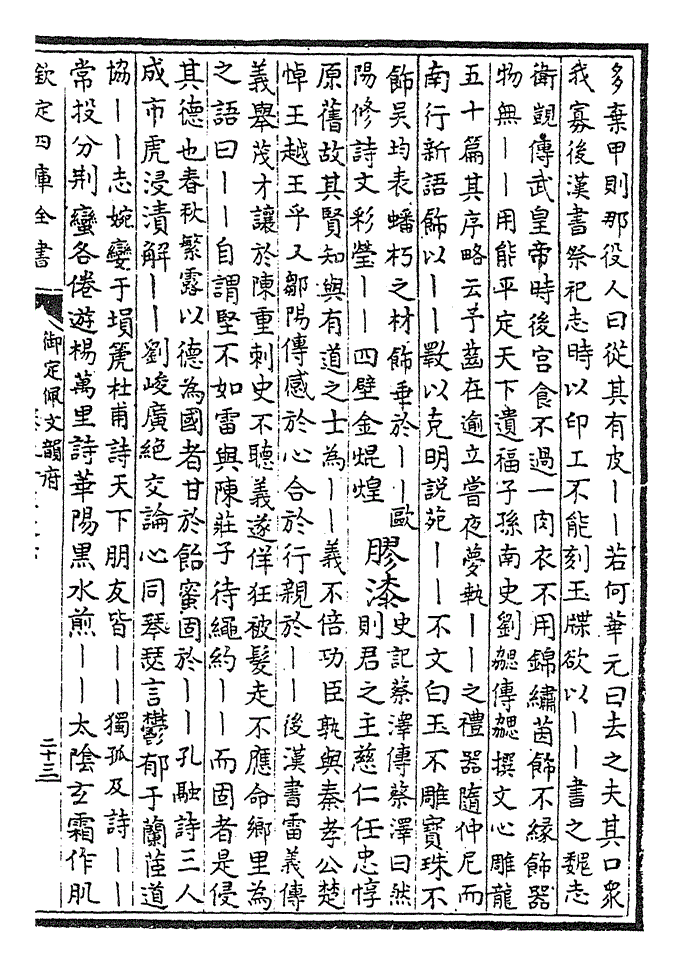 多棄甲則那役人曰從其有皮丨丨若何華元曰去之夫其口衆
我寡後漢書祭祀志時以印工不能刻玉牒欲以丨丨書之魏志
衛覬傳武皇帝時後宫食不過一肉衣不用錦繡茵飾不緣飾器
物無丨丨用能平定天下遺福子孫南史劉勰傳勰撰文心雕龍
五十篇其序略云予齒在逾立嘗夜夢執丨丨之禮器隨仲尼而
南行新語飾以丨丨斁以克明説苑丨丨不文白玉不雕寶珠不
飾吴均表蟠朽之材飾垂於丨丨歐
陽修詩文彩瑩丨丨四壁金焜煌
膠漆
史記蔡澤傳蔡澤曰然
則君之主慈仁任忠惇
原舊故其賢知與有道之士為丨丨義不倍功臣孰與秦孝公楚
悼王越王乎又鄒陽傳感於心合於行親於丨丨後漢書雷義傳
義舉茂才讓於陳重刺史不聽義遂佯狂被髮走不應命鄉里為
之語曰丨丨自謂堅不如雷與陳莊子待繩約丨丨而固者是侵
其德也春秋繁露以德為國者甘於飴蜜固於丨丨孔融詩三人
成市虎浸漬解丨丨劉峻廣絶交論心同琴瑟言鬱郁于蘭茝道
協丨丨志婉孌于塤篪杜甫詩天下朋友皆丨丨獨孤及詩丨丨
常投分荆蠻各倦遊楊萬里詩華陽黒水煎丨丨太陰玄霜作肌
欽定四庫全書
御定佩文韻府
二十三